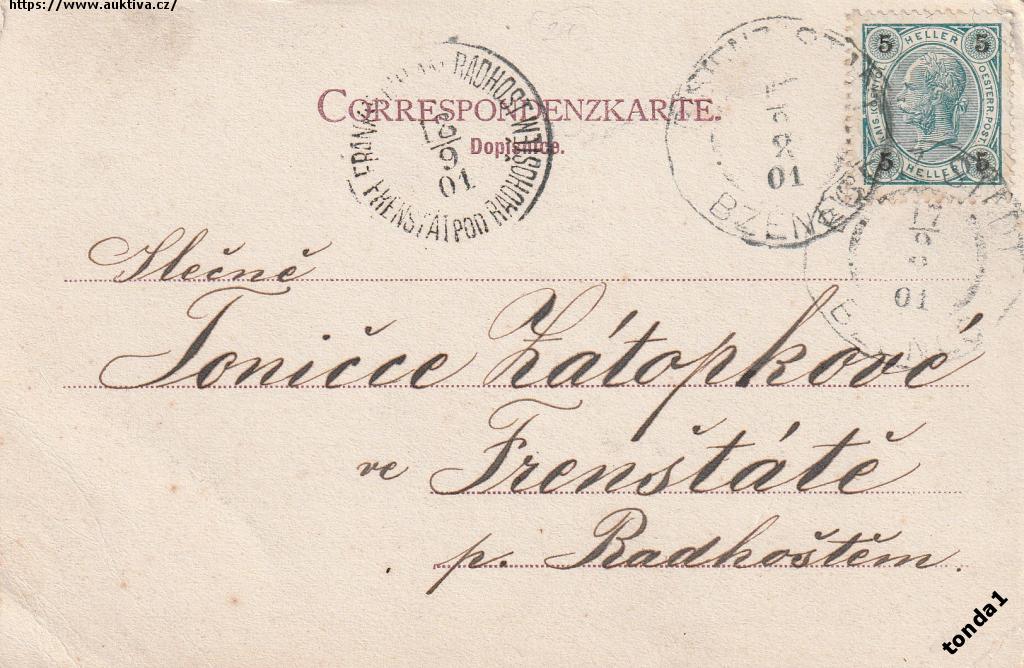 https://www.auktiva.cz/
5 HELLER 5
KAIS. KÖNIGL. OESTERR. POST
5 HELLER 5
CORRESPONDENZKARTE.
Dopisnice.
RADHOST
9
01
FRENŠTÁT POD RADHOŠTĚM
01
BZENEC
17
9
01
Slečně
Toničce Zátopkové
ve Frenštátě
p. Radhoštěm.
tonda1